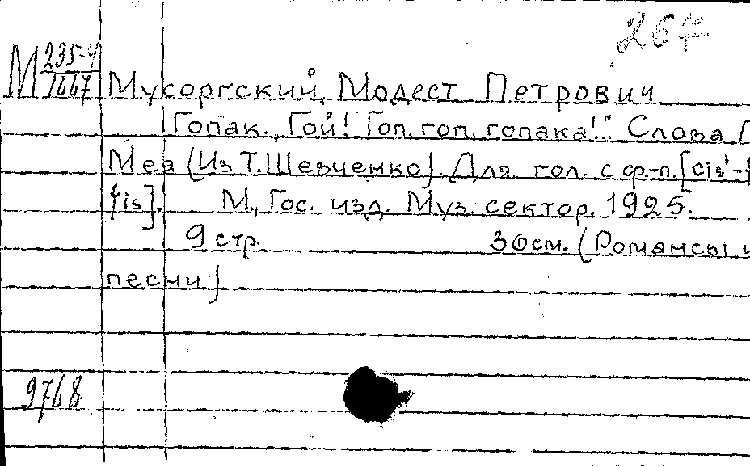 267
М 235-9
1667
Мусоргский, Модест Петрович
Гопак. „Гой! Гоп, гоп, гопака!" Слова Л.
Мея (Из Т. Шевченко). Для гол. с ф-п. [cis'-
fis].    М., Гос. изд. Муз. сектор. 1925.
9 стр.    30 см. (Романсы и
песни)
9768